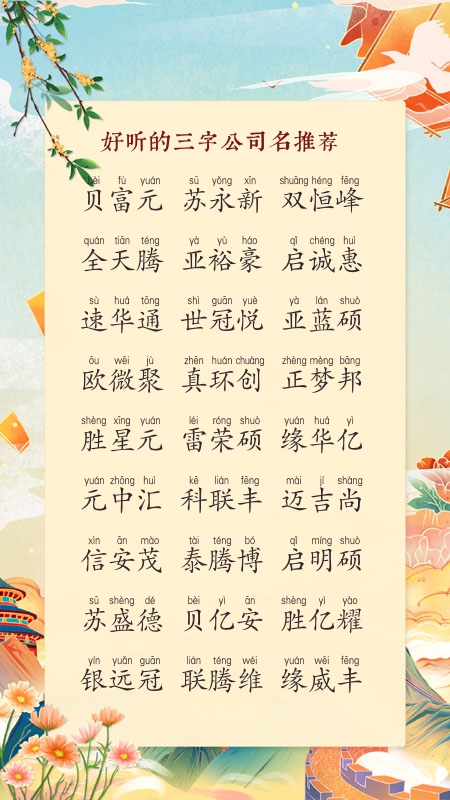 好听的三字公司名推荐
bèi fù yuán sū yǒng xīn shuāng héng fēng
贝富元 苏永新 双恒峰
quán tiān téng yà yù háo qǐ chéng huì
全天腾 亚裕豪 启诚惠
sù huá tōng shì guān yuè yà lán shuò
速华通 世冠悦 亚蓝硕
ōu wēi jù zhēn huán chuàng zhèng mèng bāng
欧微聚 真环创 正梦邦
shèng xīng yuán léi róng shuò yuán huá yì
胜星元 雷荣硕 缘华亿
yuán zhōng huì kē lián fēng mài jí shàng
元中汇 科联丰 迈吉尚
xìn ān mào tài téng bó qǐ míng shuò
信安茂 泰腾博 启明硕
sū shèng dé bèi yì ān shèng yì yào
苏盛德 贝亿安 胜亿耀
yín yuǎn guān lián téng wéi yuán wēi fēng
银远冠 联腾维 缘威丰